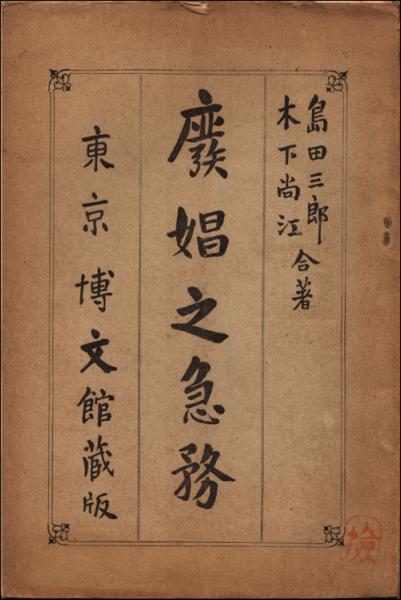 島田三郎
木下尚江
合著
廢娼之急務
東京博文館藏版
檢